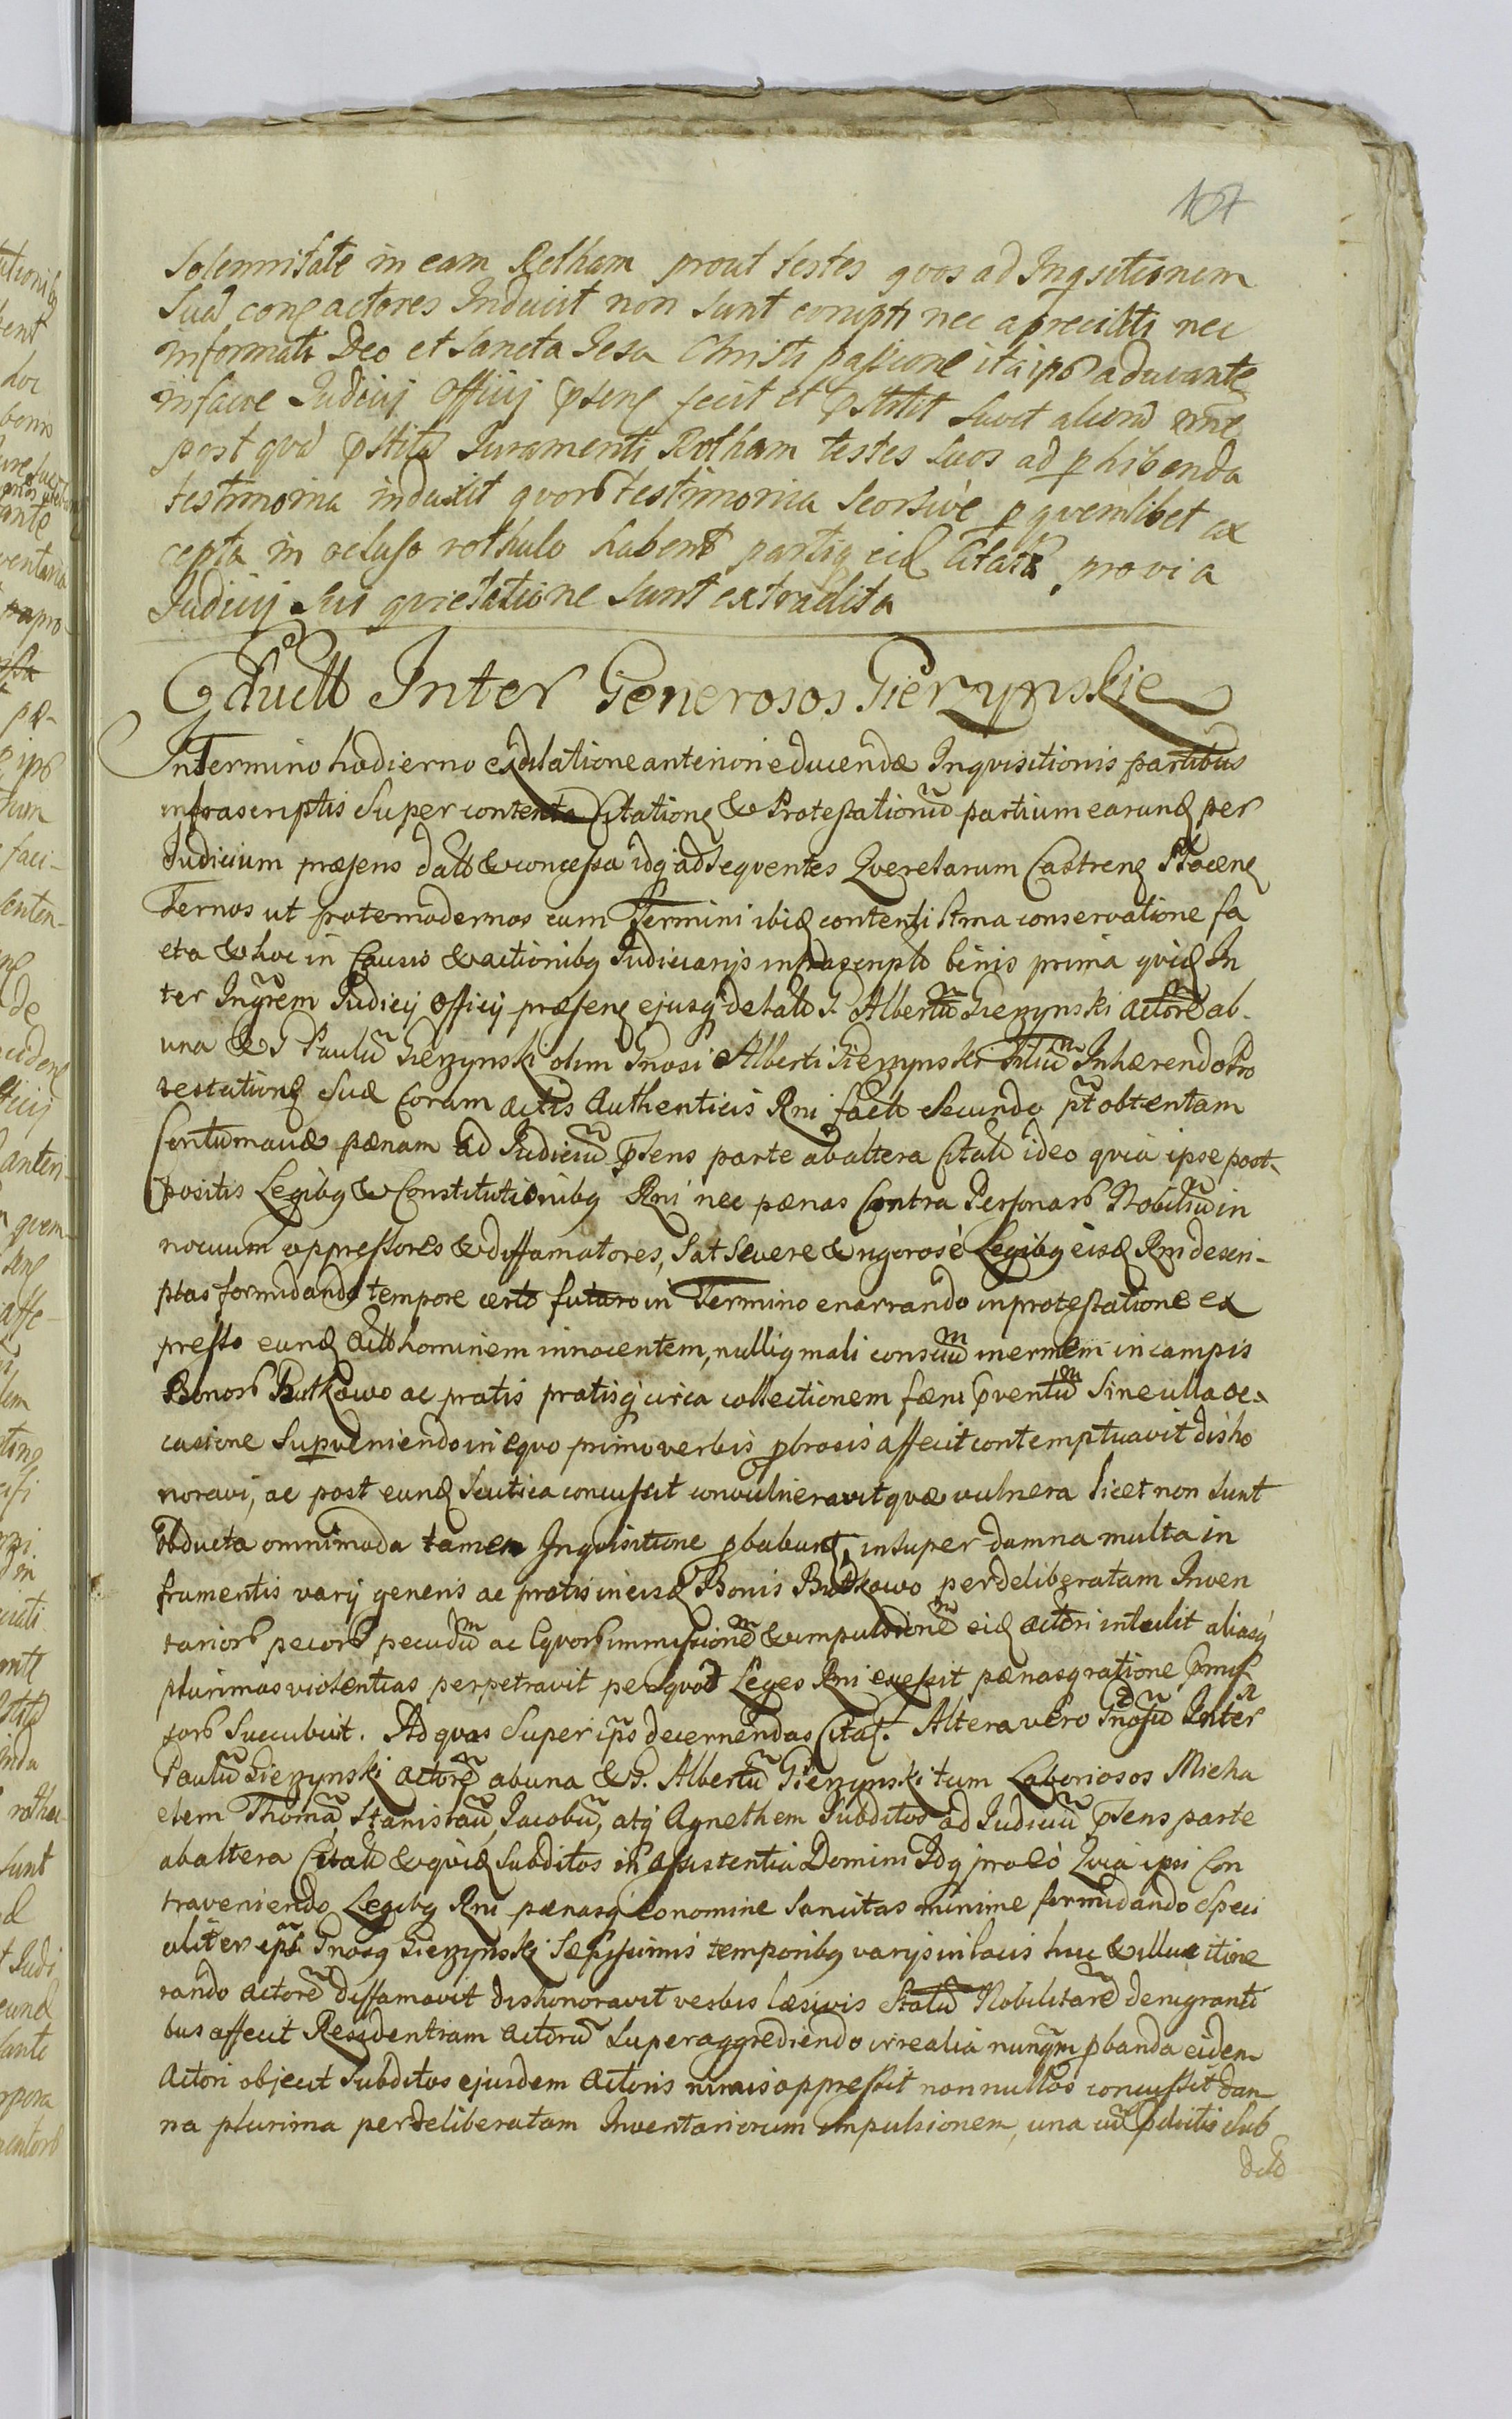 107
Solennitate in eam Rotham prout testes quos ad Inqsitionem
Sua conę actores Induxit non sunt corupti nec apreciati nec
informati Deo et Sancta Jesu Christi passione ita ips adiuvante
in facie Judicij Officij pseng fecit et pstitit
post qvd pstita Juramenti Rotham testes suos ad phibenda
testimonia induxit qvorb testimonia seorsive p qvemlibet ex
cepta in ocluso rothulo habent partiq eid Citata previa
Judicij sui qvietatione sunt extradita
Educto Inter Generosos Gierzynskie
In Termino hodierno ex dilatione anteriori educendæ Inqvisitionis partibus
infrascriptis super contenta Citationę & Protestationum partium earundę per
Judicium præsens dato & concessa idq adseqventes Qverelarum Castrenę Plocenę
Ternos ut protomodernos cum Termini ibidę contenti firma conservatione fa
cta & hoc in Causis & actionibq Judiciarijs infrascripto binis prima qvidę In
ter Ingrem Judicij Officij præsenę ejusq delato G Albertu Gierzynski actore ab
una & G Paulu Gierzynski olim Gnosi Alberti Gierzynski filiu Inhærendo Pro
testationę suæ Coram actis Authenticis Rni facto Secundo pt obtentam
Contumaciæ pænam ad Judiciu psens parte ab altera Citatu ideo qvia ipse post-
positis Legibq & Constitutionibq Rni nec pænas Contra Personarb Nobiliu in
nocuum oppressores & diffamatores, Sat Severe & rigorose Legibq eisdę Rni descri-
ptas formidando tempore certo futuro in Termino enarrando in protestatione ex
presso eundę actto hominem innocentem, nulliq mali consciu inermem in campis
Bonorb Butkowo ac pratis pratisq circa collectionem fæni pventu Sine ulla oc-
casione Supveniendo in eqvo primo verbis pbrosis affecit contemptuavit disho
noravi, ac post eundę Scutica concussit convulneravit qvæ vulnera licet non sunt
obducta omnimoda tamen Inqvisitione pbabunt, insuper damna multa in
frumentis varij generis ac pratis in eisdę Bonis Butkowo per deliberatam Inven
tariorb pecorb pecudu ac Eqvorb immissione & impulsione eidę actori intulit aliasq
plurimas violentias perpetravit per qvod Leges Rni excessit pænasq ratione pmis
sorb Succubuit. Ad qvas Super ips decernendas Citat. Altera vero Gnosu Inter
Paulu Gierzynski actore ab una & G. Albertu Gierzynski tum Laboriosos Micha
elem Thoma, Stanislau, Jacobu, atq Agnethem Subditos ad Judiciu psens parte
ab altera Citatu & qvidę Subditos in assistentia Domini Idq pro eo Qvia ipsi Con
traveniendo Legibq Rni pænasq eo nomine sancitas minime formidando Speci
aliter ips Gnosq Gierzynski Sæpissimis temporibq varijs in locis huc & illuc itine
rando actore diffamavit dishonoravit verbis læsivis Statu Nobilitare denigranti
bus affecit Residentiam actoru Superaggrediendo irrealia nunqm pbanda eidem
Actori objecit Subditos ejusdem Actoris nimis oppressit nonnullos concussit dam
na plurima per deliberatam Inventariorum impulsionem, una cu pdictis Sub
dito